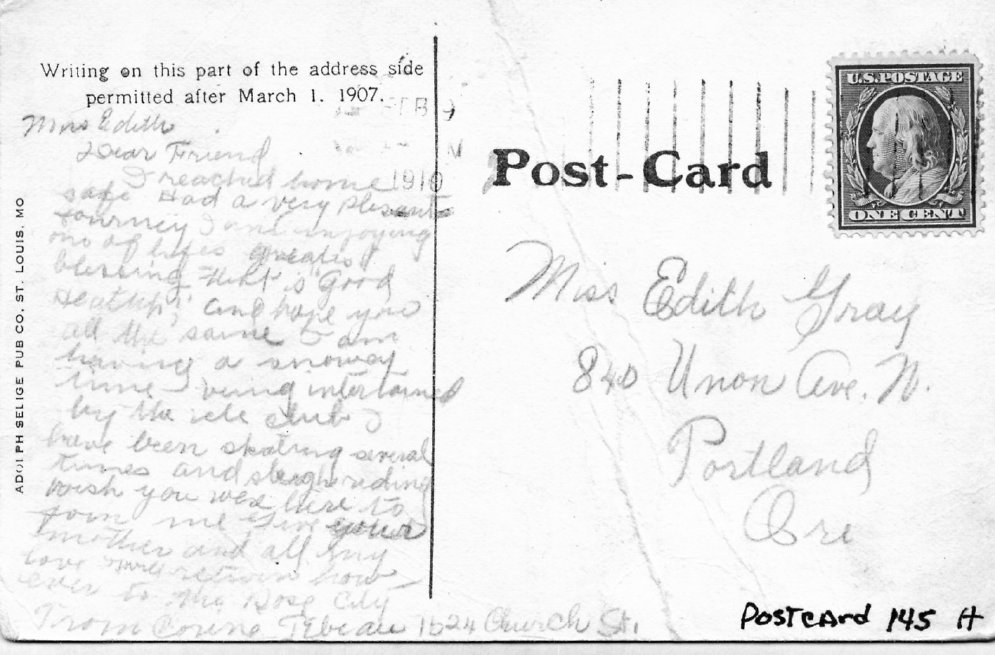 Writing on this part of the address side
permitted after March 1. 1907.
FEB
1910
U.S. POSTAGE
ONE CENT
Post-Card
ADOLPH SELIGE PUB CO, ST. LOUIS, MO
Miss Edith
Dear Friend
I reached home
safe Had a very plesant
journey I am injoying
one of lifes greatist
blessing that is "Good
Health", and hope you
all the same I am
having a snowey
time being intertained
by the icle club I
have been skating several
times and sleigh riding
wish you were here to
join me Give your
mother and all my
love return how
ever to the Rose City
From Corene Tebeau 1524 Church St.
Miss Edith Gray
840 Union Ave. N.
Portland
Ore
PostcArd 145 H